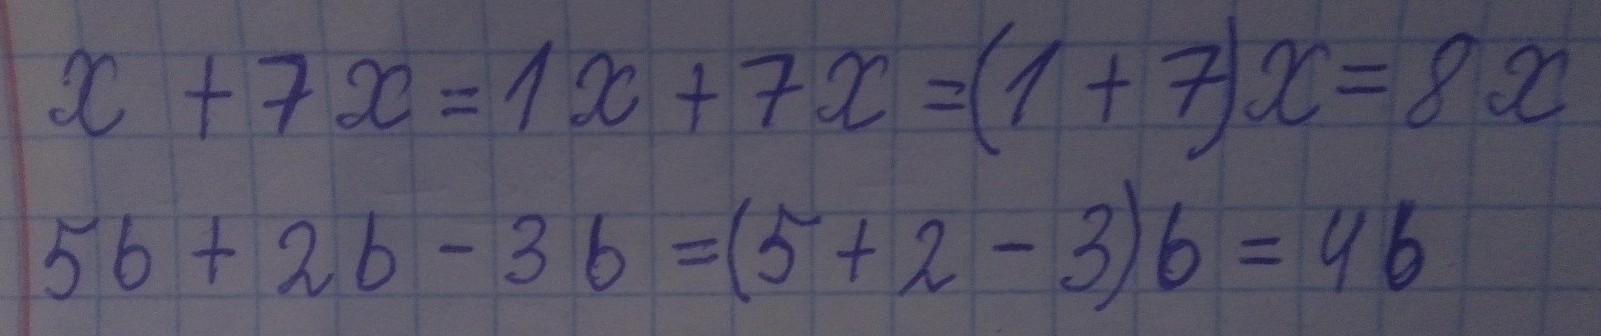 x + 7x = 1x + 7x = (1 + 7)x = 8x
5b + 2b - 3b = (5 + 2 - 3)b = 4b